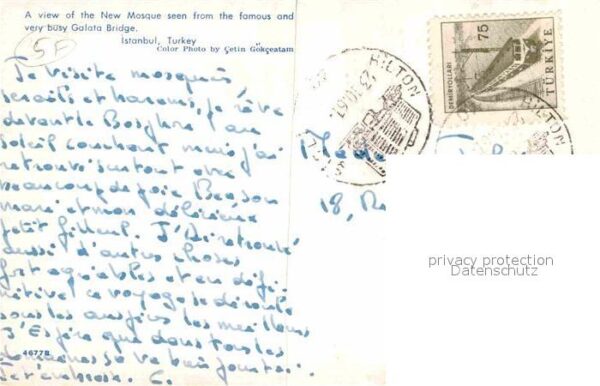 A view of the New Mosque seen from the famous and
very busy Galata Bridge.
Istanbul, Turkey
Color Photo by Çetin Gökçeatam
5F
Je visite mosquées
serails et harems, je rêve
devant le Bosphore au
soleil couchant mais j'ai
retrouvé surtout avec
beaucoup de joie
mari et mon délicieux
petit filleul. J'ai retrouvé
aussi d'autres choses
fort agréables et en défi
nitive ce voyage se déroule
sous les auspices les meilleurs
J'espère que dans tous les
domaines
Je t'embrasse. C.
46778
HILTON
75
DEMİRYOLLARI
TÜRKİYE
HILTON
18,
privacy protection
Datenschutz